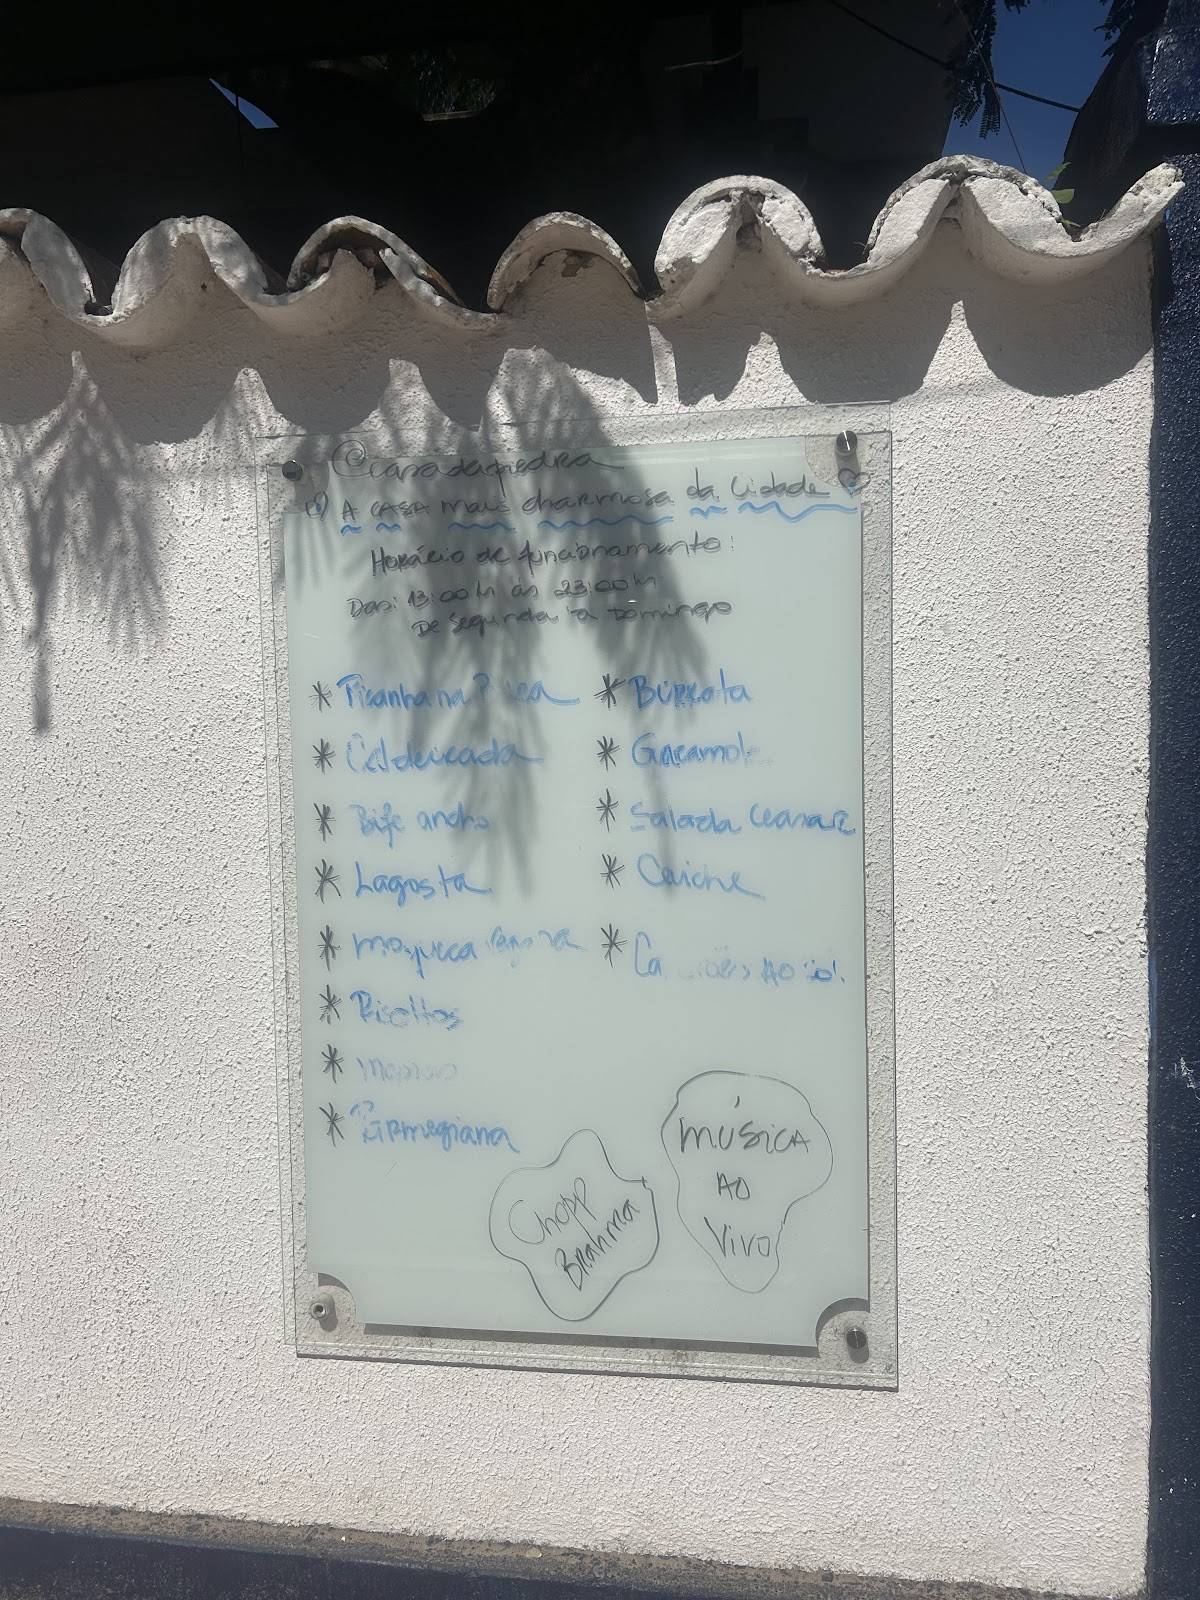 @casadapedra
A CASA mais charmosa da Cidade
Horário de funcionamento:
Das: 13:00h às 23:00h
De Segunda a Domingo
* Picanha na
* Caldeirada
* Bife ancho
* Lagosta
* Moqueca
* Risottos
*
* Parmegiana
* Burrata
* Gacamole
* Salada Ceasar
* Ceviche
* AO
Chopp
Brahma
MÚSICA
AO
VIVO